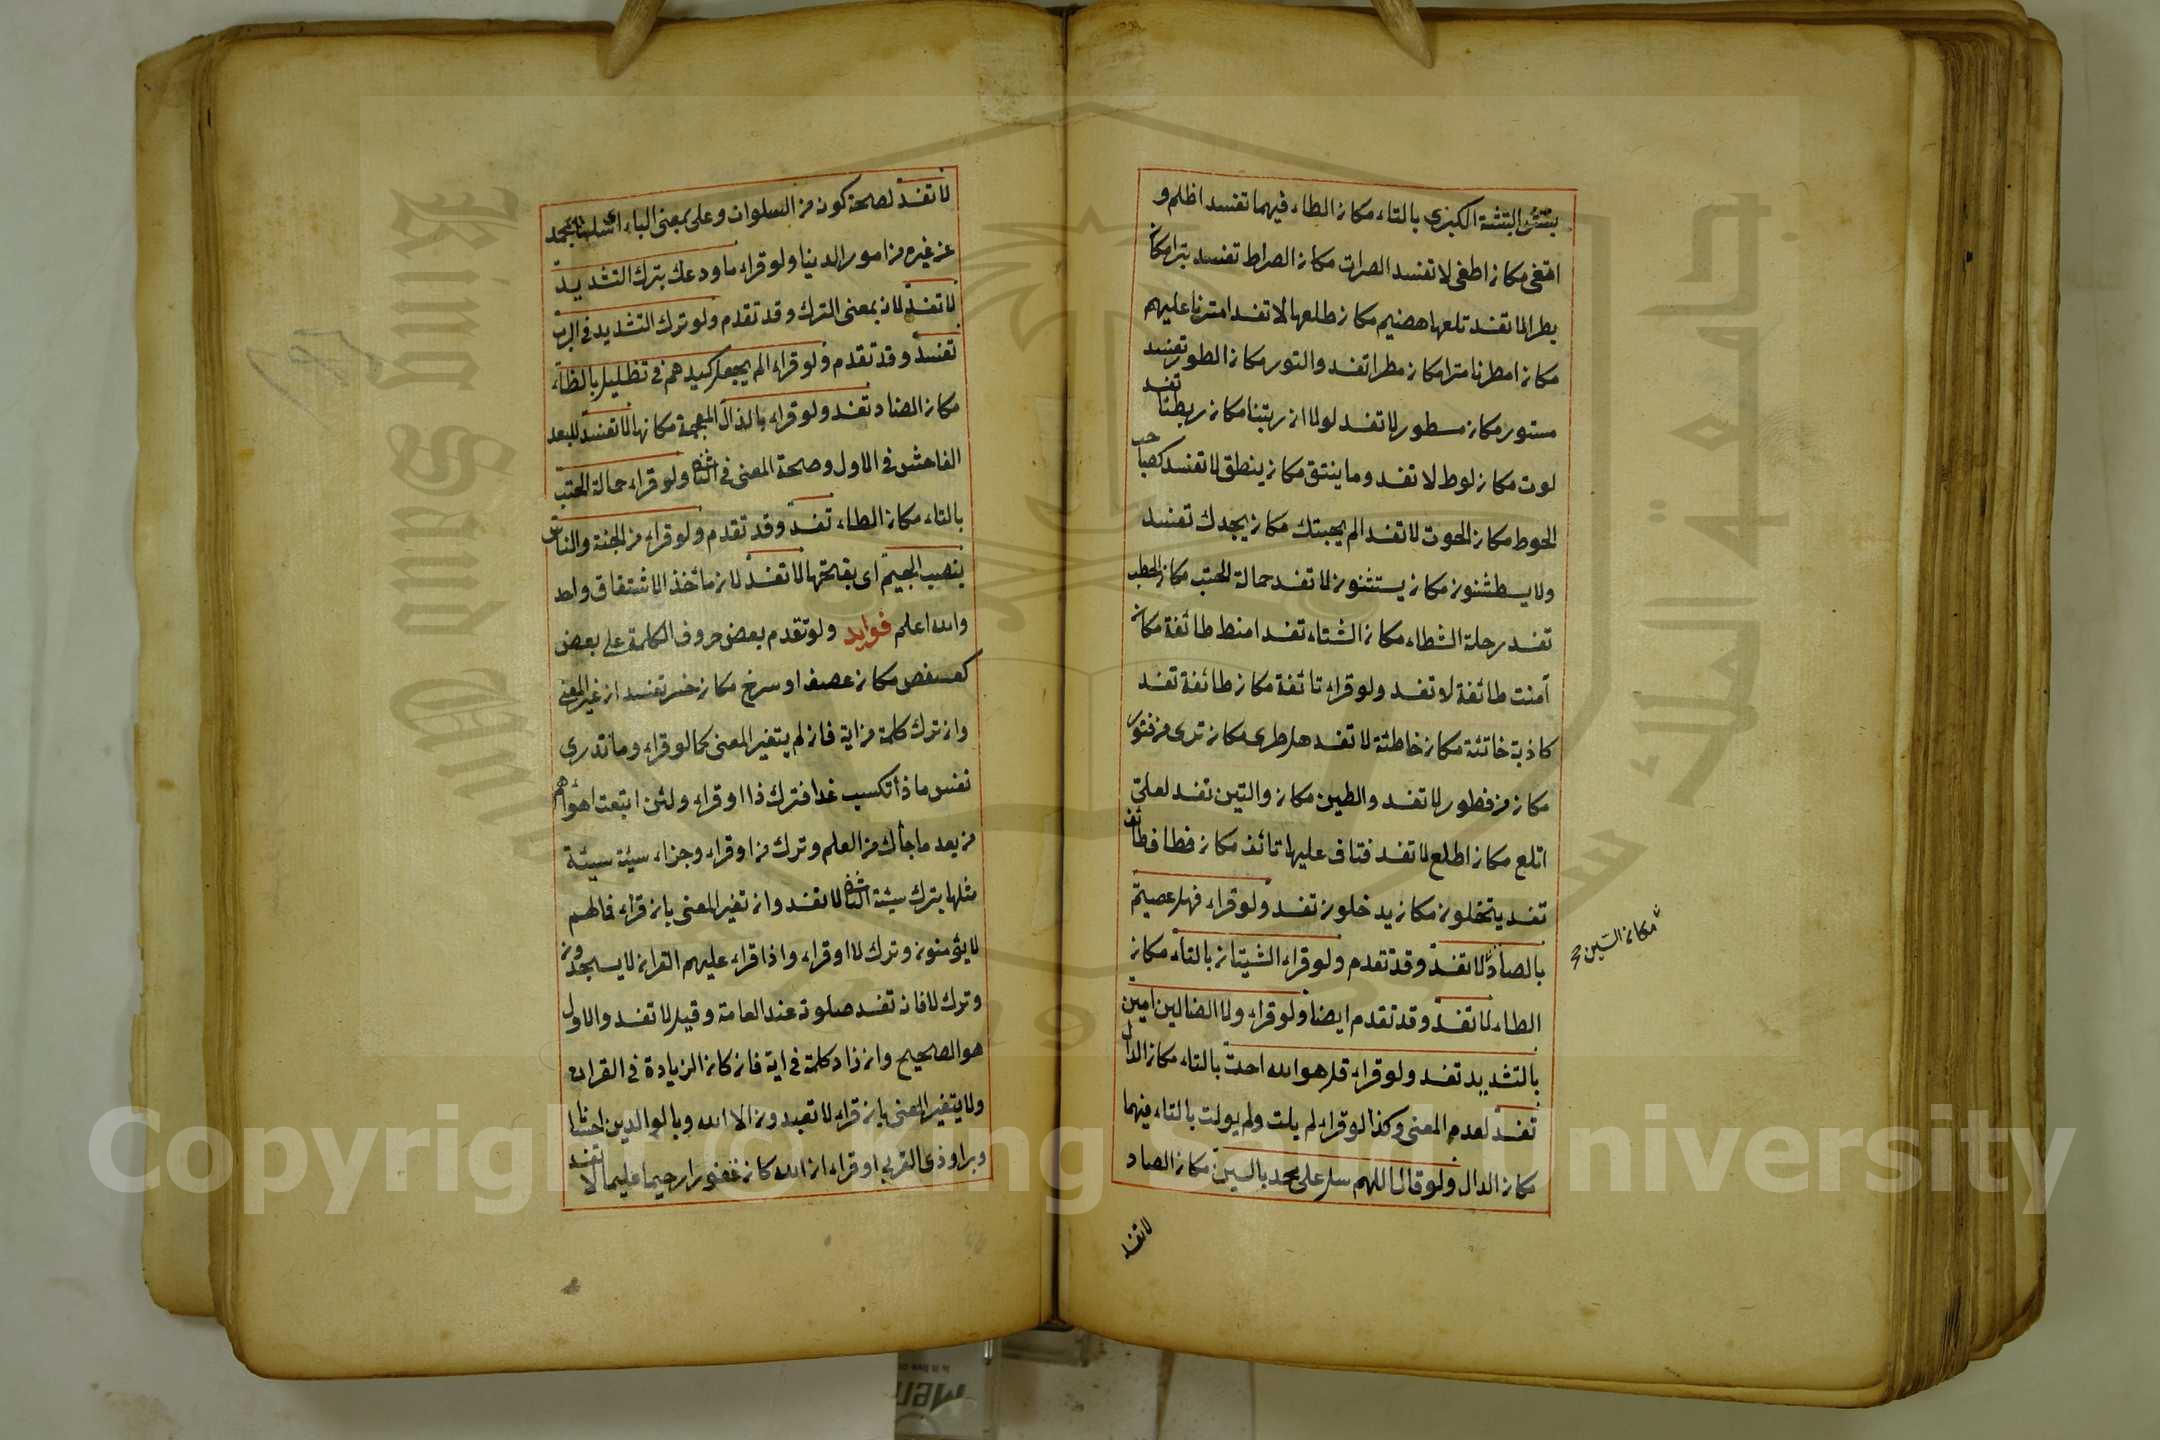 يبتش والبتشة الكبرى بالتاء مكان الطاء فيهما تفسد اظلم و
اتغى مكان اطغى لا تفسد الصرات مكان الصراط تفسد بترا مكان
بطرا لا تفسد تلعها هضيم مكان طلعها لا تفسد امترنا عليهم
مكان امطرنا مترا مكان مطرا تفسد والتور مكان الطور تفسد
مستور مكان مسطور لا تفسد لولا ان ربتنا مكان ربطنا تفسد
لوت مكان لوط لا تفسد وما ينتق مكان ينطق لا تفسد كصاحب
الحوط مكان الحوت لا تفسد الم يجبتك مكان يجدك تفسد
ولا يسطثنون مكان يستثنون لا تفسد حمالة الحتب مكان الحطب
تفسد رحلة الشطاء مكان الشتاء تفسد امنط طائفة مكان
آمنت طائفة لا تفسد ولو قراء تائفة مكان طائفة تفسد
كاذبة خاتئة مكان خاطئة لا تفسد هل طرى مكان ترى من فتور
مكان من فطور لا تفسد والطين مكان والتين تفسد لعلى
اتلع مكان اطلع لا تفسد فتاف عليها تائف مكان فطاف طائف
تفسد يتخلون مكان يدخلون تفسد ولو قراء فهل عصيتم
بالصاد لا تفسد وقد تقدم ولو قراء الشيتان بالتاء مكان
مكان السين صح
الطاء لا تفسد وقد تقدم ايضا ولو قراء ولا الضالين امين
بالتشديد تفسد ولو قراء قل هو الله احت بالتاء مكان الدال
تفسد لعدم المعنى وكذا لو قراء لم يلت ولم يولت بالتاء فيهما
مكان الدال ولو قال اللهم سل على محمد بالسين مكان الصاد
لا تفسد
لا تفسد لصحة كون من السلوان وعلى بمعنى الباء اى
عن غيره من امور الدنيا ولو قراء ما ودعك بترك التشديد
لا تفسد لانه بمعنى الترك وقد تقدم ولو ترك التشديد فى الرب
تفسد وقد تقدم ولو قراء الم يجعل كيدهم فى تظليل بالظاء
مكان الضاد تفسد ولو قراء بالذال المعجمة مكانها لا تفسد للبعد
الفاحش فى الاول وصحة المعنى فى الثانى ولو قراء حمالة الحتب
بالتاء مكان الطاء تفسد وقد تقدم ولو قراء من الجنة والناس
بنصب الجيم اى بفتحتها لا تفسد لان مأخذ الاشتقاق واحد
والله اعلم فوايد ولو تقدم بعض حروف الكلمة على بعض
كعسفص مكان عصف او سرخ مكان خسر تفسد ان غير المعنى
وان ترك كلمة من اية فان لم يتغير المعنى كما لو قراء وما تدرى
نفس ماذا تكسب غدا فترك ذا او قراء ولئن اتبعت اهواءهم
من بعد ما جأك من العلم وترك من او قراء وجزاء سيئة سيئة
مثلها بترك سيئة الثانية لا تفسد وان تغير المعنى بان قراء فما لهم
لا يؤمنون وترك لا او قراء واذا قراء عليهم القران لا يسجدون
وترك لا فان تفسد صلوته عند العامة وقيل لا تفسد والاول
هو الصحيح وان زاد كلمة فى اية فان كان الزيادة فى القران
ولا يتغير المعنى بان قراء لا تعبدون الا الله وبالوالدين احسانا
وبرا وذى القربى او قراء ان الله كان غفورا رحيما عليما لا تفسد
King Saud University
Copyright © King Saud University